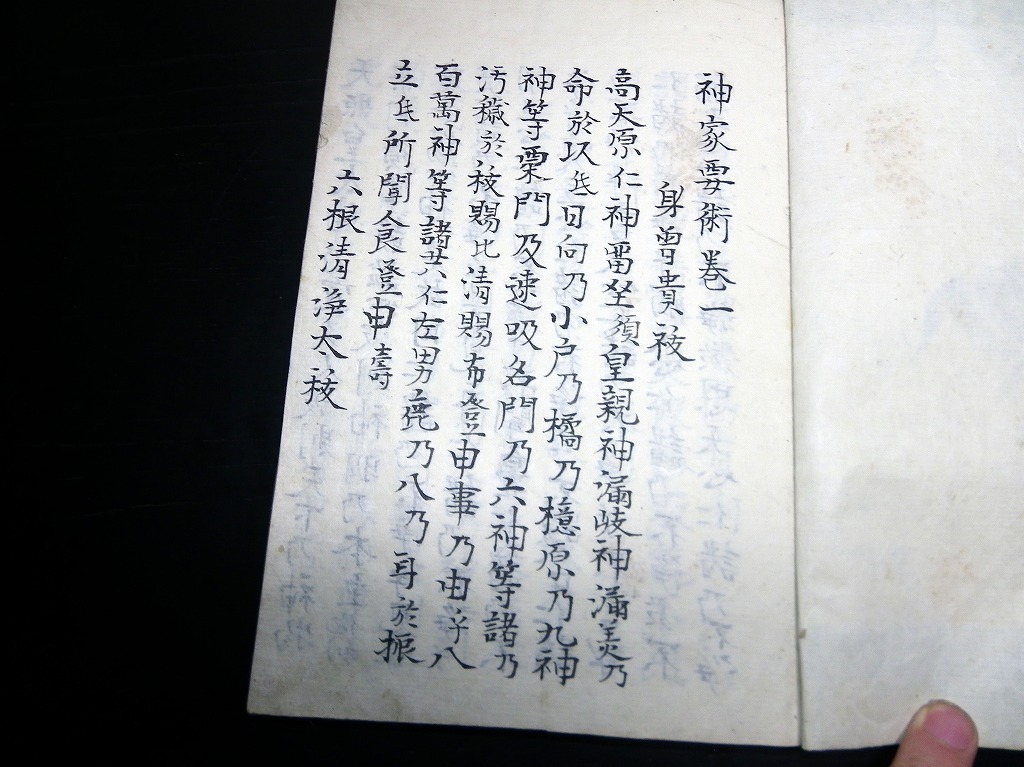 神家要術巻一
身曽貴祓
高天原仁神畄坐須皇親神漏岐神漏美乃
命於以氐日向乃小戸乃橘乃檍原乃九神
神等粟門及速吸名門乃六神等諸乃
汚穢於祓賜比清賜布登申事乃由乎八
百萬神等諸共仁左男鹿乃八乃耳於振
立氐所聞食登申壽
六根清浄太祓